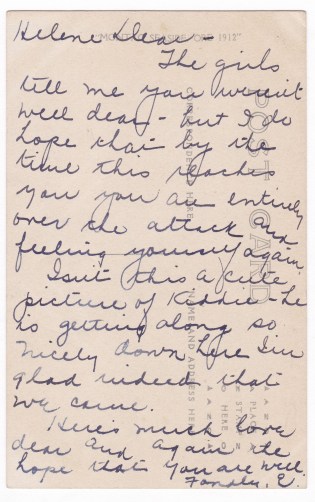 Helene Dear -
The girls
tell me you weren't
well dear - but I do
hope that by the
time this reaches
you you are entirely
over the attack and
feeling yourself again.
Isn't this a cute
picture of Kiddie - he
is getting along so
nicely down here I'm
glad indeed that
we came.
Here's much love
dear and again the
hope that you are well.
Fondly, E.
POST CARD
NAME AND ADDRESS HERE